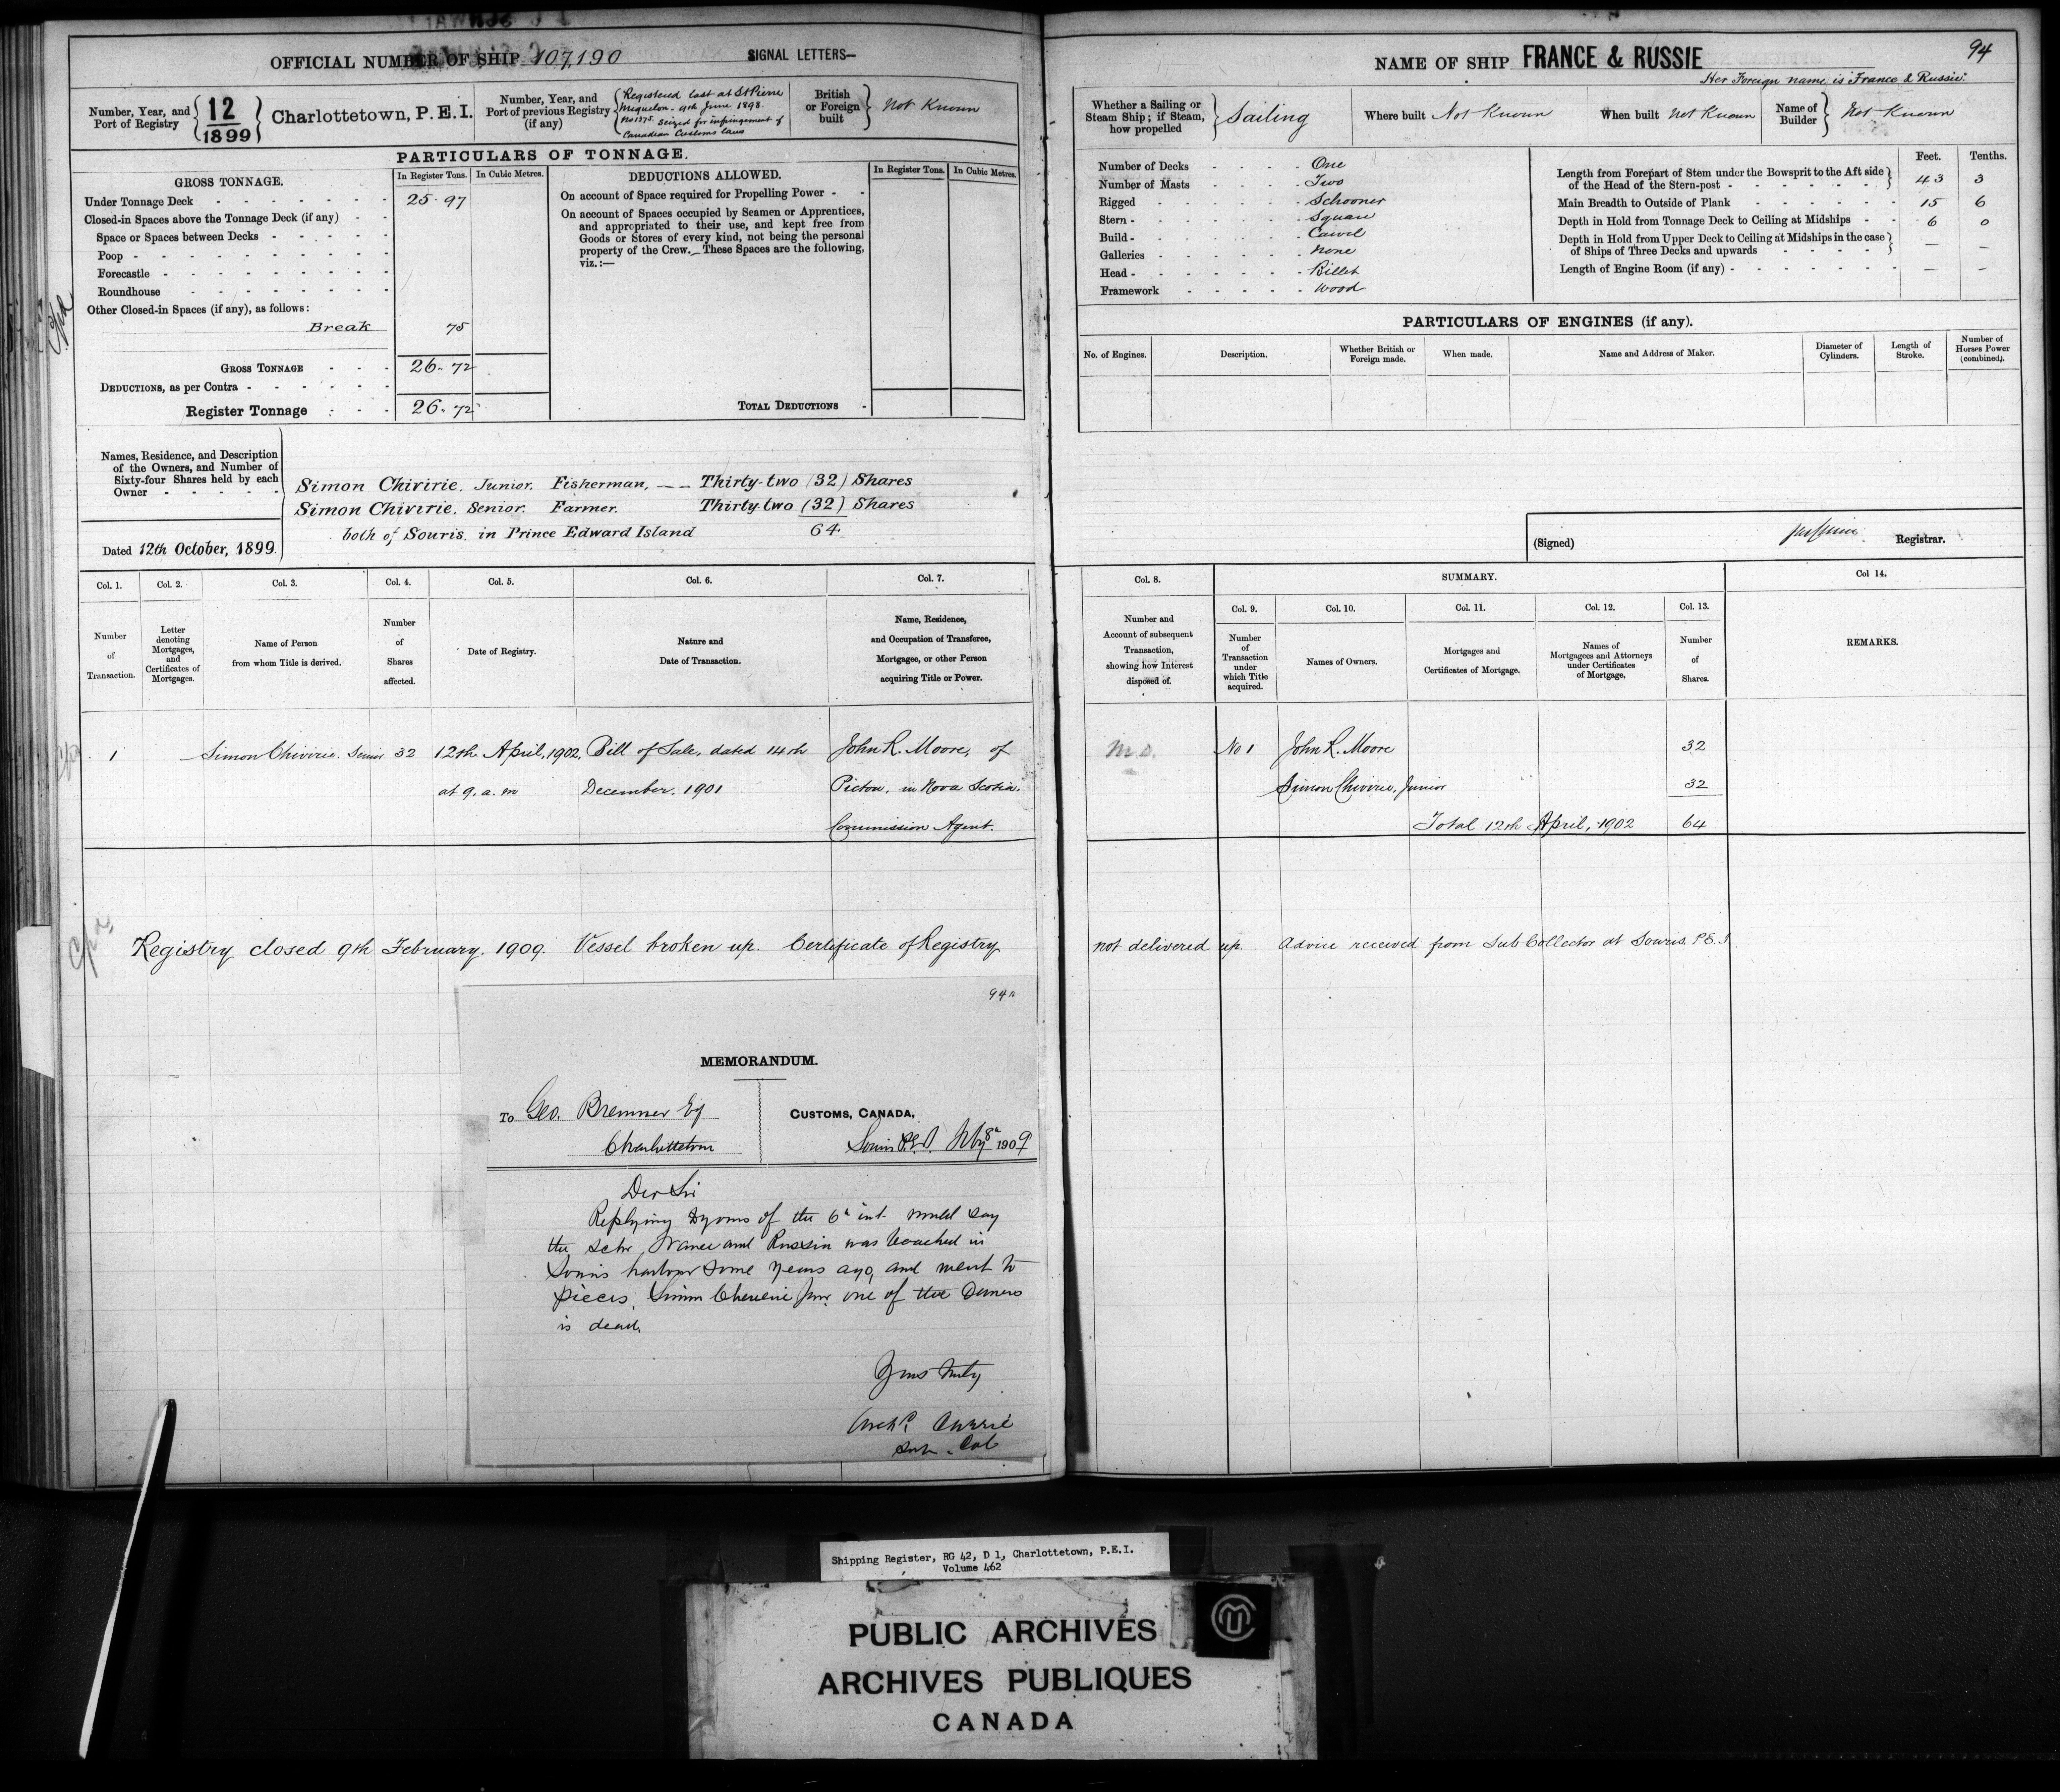 OFFICIAL NUMBER OF SHIP 107,190 SIGNAL LETTERS—
Number, Year, and Port of Registry 12 1899 Charlottetown, P.E.I.
Number, Year, and Port of previous Registry (if any)
Registered last at St Pierre
Miquelon - 9th June 1898.
No 1375. Seized for infringement of
Canadian Customs laws
British or Foreign built Not Known
PARTICULARS OF TONNAGE.
GROSS TONNAGE. In Register Tons. In Cubic Metres.
Under Tonnage Deck 25.97
Closed-in Spaces above the Tonnage Deck (if any)
Space or Spaces between Decks
Poop
Forecastle
Roundhouse
Other Closed-in Spaces (if any), as follows:
Break 75
GROSS TONNAGE 26.72
DEDUCTIONS, as per Contra
Register Tonnage 26.72
DEDUCTIONS ALLOWED. In Register Tons. In Cubic Metres.
On account of Space required for Propelling Power
On account of Spaces occupied by Seamen or Apprentices,
and appropriated to their use, and kept free from
Goods or Stores of every kind, not being the personal
property of the Crew.—These Spaces are the following,
viz.:—
TOTAL DEDUCTIONS
Names, Residence, and Description
of the Owners, and Number of
Sixty-four Shares held by each
Owner
Simon Chivirie, Junior. Fisherman, —— Thirty-two (32) Shares
Simon Chivirie, Senior. Farmer. Thirty-two (32) Shares
both of Souris, in Prince Edward Island 64
Dated 12th October, 1899.
Col. 1. Col. 2. Col. 3. Col. 4. Col. 5. Col. 6. Col. 7.
Number of Transaction.
Letter denoting Mortgages, and Certificates of Mortgages.
Name of Person from whom Title is derived.
Number of Shares affected.
Date of Registry.
Nature and Date of Transaction.
Name, Residence, and Occupation of Transferee, Mortgagee, or other Person acquiring Title or Power.
1 Simon Chivirie. Senior 32 12th April, 1902, Bill of Sale, dated 14th John R. Moore, of
at 9. a. m December. 1901 Pictou, in Nova Scotia.
Commission Agent.
Registry closed 9th February. 1909. Vessel broken up. Certificate of Registry
94A
MEMORANDUM.
To Geo. Bremner Esq
Charlottetown
CUSTOMS, CANADA,
Souris P.E.I. Feby 8th 1909
Der Sir
Replying to yours of the 6th inst. would say
the schr France and Russia was beached in
Souris harbour some years ago, and went to
pieces. Simon Cheverie Junr. one of the Owners
is dead.
Yours truly
Archd. Currie
Sub. Col
NAME OF SHIP FRANCE & RUSSIE 94
Her Foreign name is "France & Russie".
Whether a Sailing or Steam Ship; if Steam, how propelled Sailing
Where built Not Known When built Not Known Name of Builder Not Known
Number of Decks One
Number of Masts Two
Rigged Schooner
Stern Square
Build Carvel
Galleries None
Head Billet
Framework Wood
Feet. Tenths.
Length from Forepart of Stem under the Bowsprit to the Aft side of the Head of the Stern-post 43 3
Main Breadth to Outside of Plank 15 6
Depth in Hold from Tonnage Deck to Ceiling at Midships 6 0
Depth in Hold from Upper Deck to Ceiling at Midships in the case of Ships of Three Decks and upwards — —
Length of Engine Room (if any) — —
PARTICULARS OF ENGINES (if any).
No. of Engines. Description. Whether British or Foreign made. When made. Name and Address of Maker. Diameter of Cylinders. Length of Stroke. Number of Horses Power (combined).
(Signed) Registrar.
Col. 8. SUMMARY. Col 14.
Col. 9. Col. 10. Col. 11. Col. 12. Col. 13.
Number and Account of subsequent Transaction, showing how Interest disposed of.
Number of Transaction under which Title acquired.
Names of Owners.
Mortgages and Certificates of Mortgage.
Names of Mortgagees and Attorneys under Certificates of Mortgage.
Number of Shares.
REMARKS.
M.D. No 1 John R. Moore 32
Simon Chivirie, Junior 32
Total 12th April, 1902 64
not delivered up. Advice received from Sub Collector at Souris. P.E.I.
Shipping Register, RG 42, D 1, Charlottetown, P.E.I.
Volume 462
PUBLIC ARCHIVES
ARCHIVES PUBLIQUES
CANADA